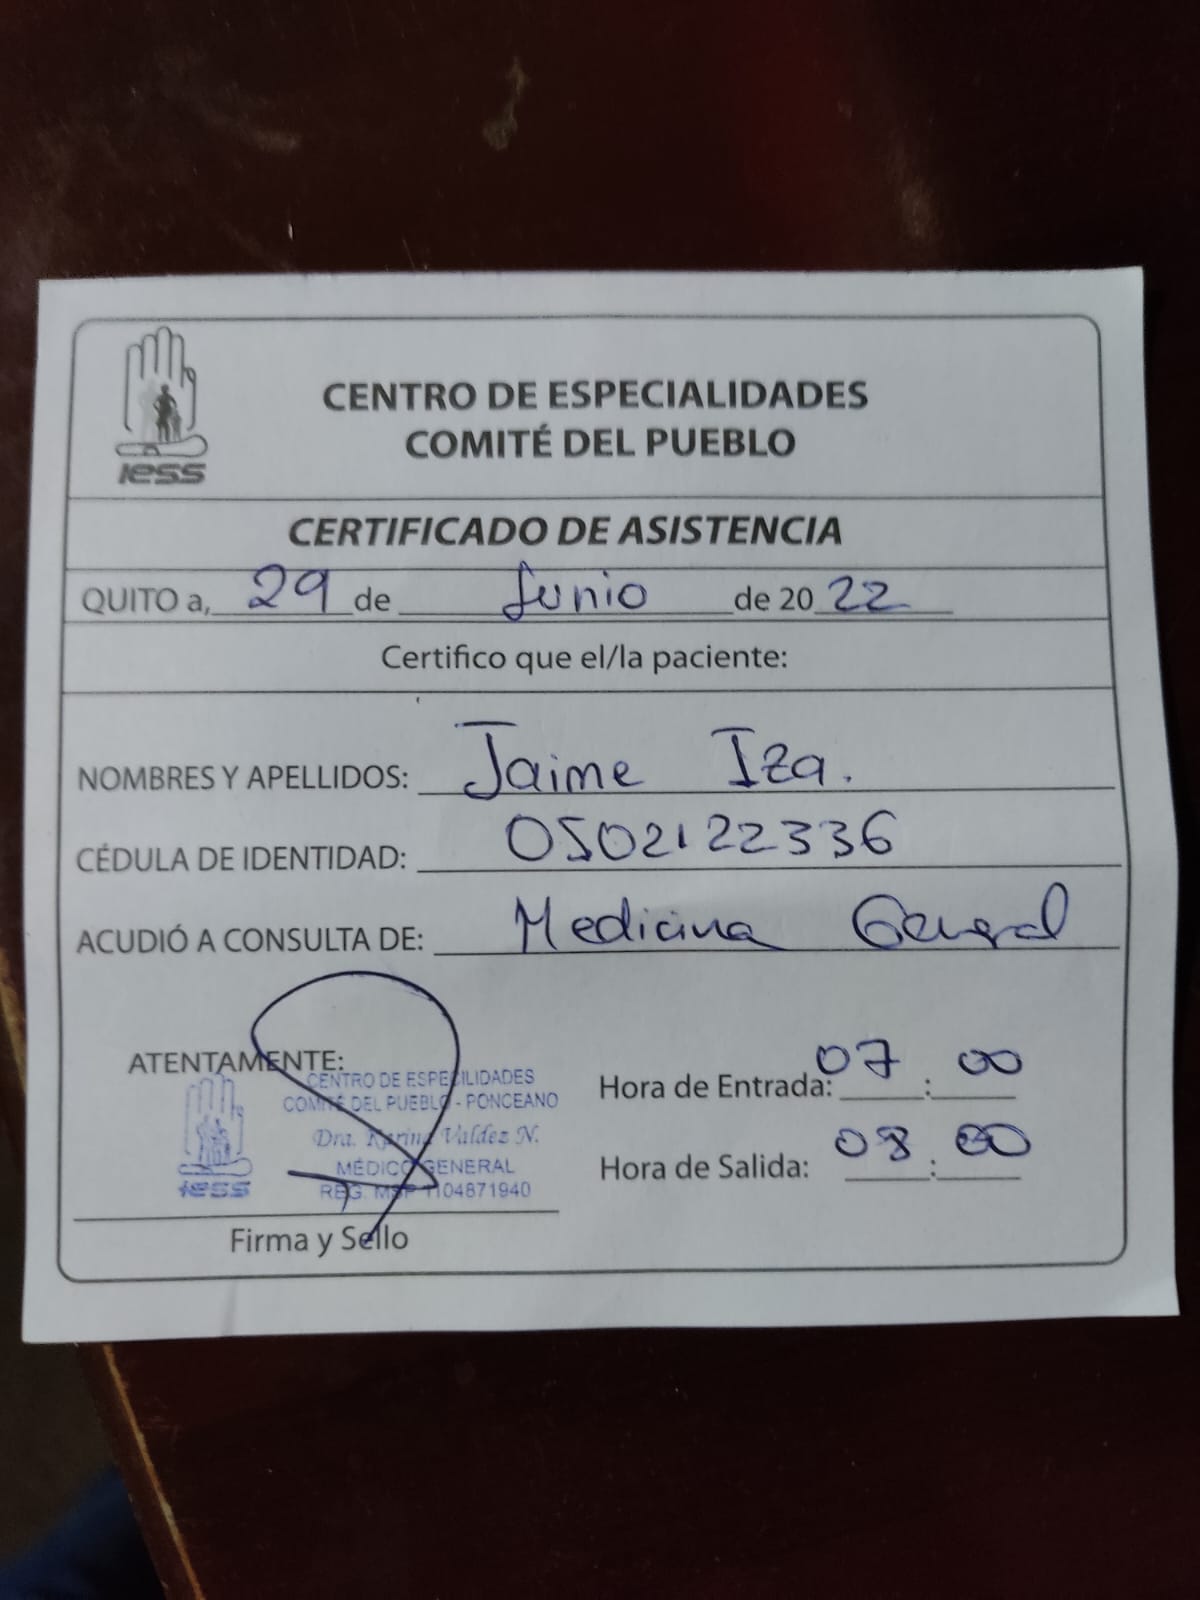 IESS
CENTRO DE ESPECIALIDADES
COMITÉ DEL PUEBLO
CERTIFICADO DE ASISTENCIA
QUITO a, 29 de Junio de 2022
Certifico que el/la paciente:
NOMBRES Y APELLIDOS: Jaime Iza.
CÉDULA DE IDENTIDAD: 0502122336
ACUDIÓ A CONSULTA DE: Medicina General
ATENTAMENTE:
CENTRO DE ESPECILIDADES
COMITÉ DEL PUEBLO - PONCEANO
Dra. Karina Valdez N.
MÉDICO GENERAL
REG. MSP 1104871940
IESS
Firma y Sello
Hora de Entrada: 07:00
Hora de Salida: 08:00